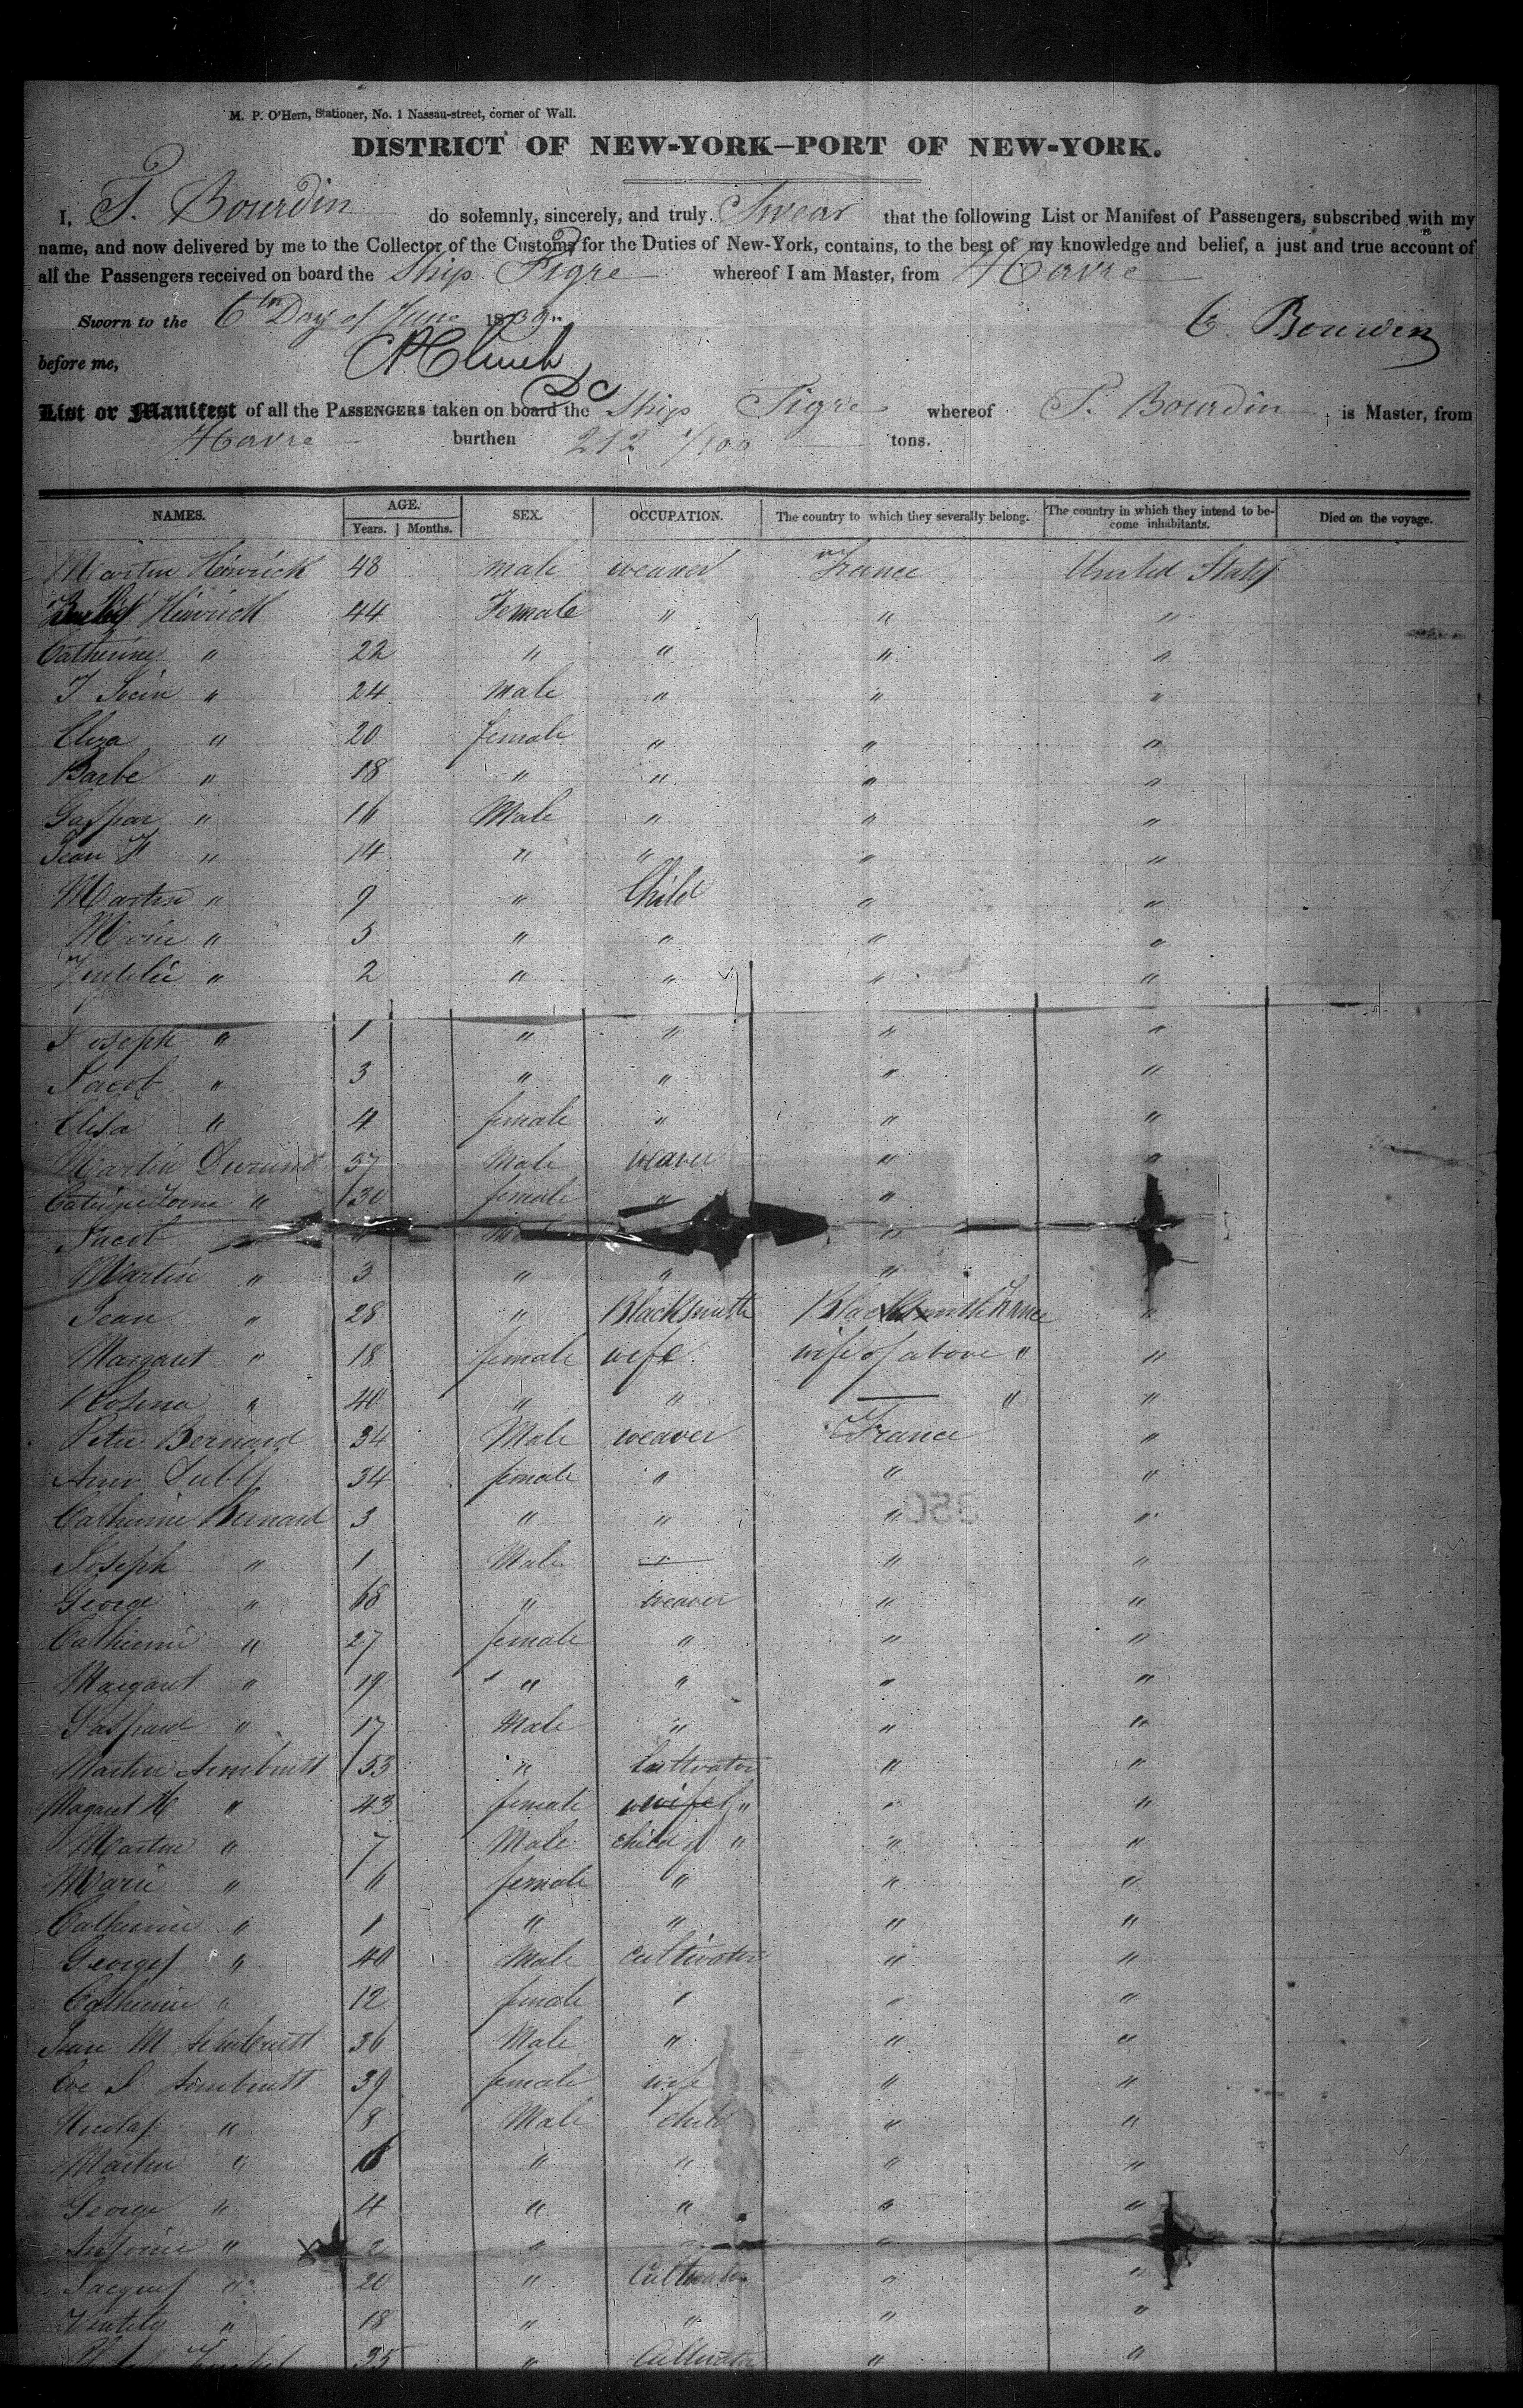 M. P. O'Hern, Stationer, No. 1 Nassau-street, corner of Wall.
DISTRICT OF NEW-YORK—PORT OF NEW-YORK.
I, T. Bourdin do solemnly, sincerely, and truly Swear that the following List or Manifest of Passengers, subscribed with my
name, and now delivered by me to the Collector of the Customs for the Duties of New-York, contains, to the best of my knowledge and belief, a just and true account of
all the Passengers received on board the Ship Tigre whereof I am Master, from Havre
Sworn to the 6th Day of June 1839
before me,
List or Manifest of all the PASSENGERS taken on board the Ship Tigre whereof T. Bourdin is Master, from
Havre burthen 212 1/100 tons.
NAMES. AGE. SEX. OCCUPATION. The country to which they severally belong. The country in which they intend to become inhabitants. Died on the voyage.
Years. Months.
Martin Heinrick 48 male weaver France United States
Hinrick 44 Female " " "
Catherine " 22 " " " "
24 male " " "
Eliza " 20 female " " "
Barbe " 18 " " " "
Gaspar " 16 Male " " "
Jean H " 14 " " " "
Martin " 9 " Child " "
Marie " 5 " " " "
" 2 " " " "
Joseph " 1 " " " "
Jacob " 3 " " " "
Elisa " 4 female " " "
Martin Durund 37 Male weaver " "
" 30 female " "
Jacob
Martin " 3 " " "
Jean " 28 " Blacksmith Blacksmith France "
Margaret " 18 female wife wife of above " "
Rosina " 40 " " — " "
Peter Bernard 34 Male weaver France "
34 female " " "
Catherine Bernard 3 " " " "
Joseph " 1 Male — " "
George " 68 " weaver " "
Catherine " 27 female " " "
Margaret " 19 " " " "
Gaspard " 17 Male " " "
Martin 53 " Cultivator " "
Magaret H " 43 female wife " " "
Martin " 7 Male child of " " "
Marie " female " " "
Catherine " 1 " " " "
Georges " 40 Male cultivator " "
Catherine " 12 female " " "
Jean M 36 Male " " "
39 female wife " "
Nicolas " 8 Male child " "
Martin " 6 " " " "
George " 4 " " " "
Antoine " 2 " " " "
Jacques " 20 " Cultivator " "
" 18 " " " "
35 " Cultivator " "
350